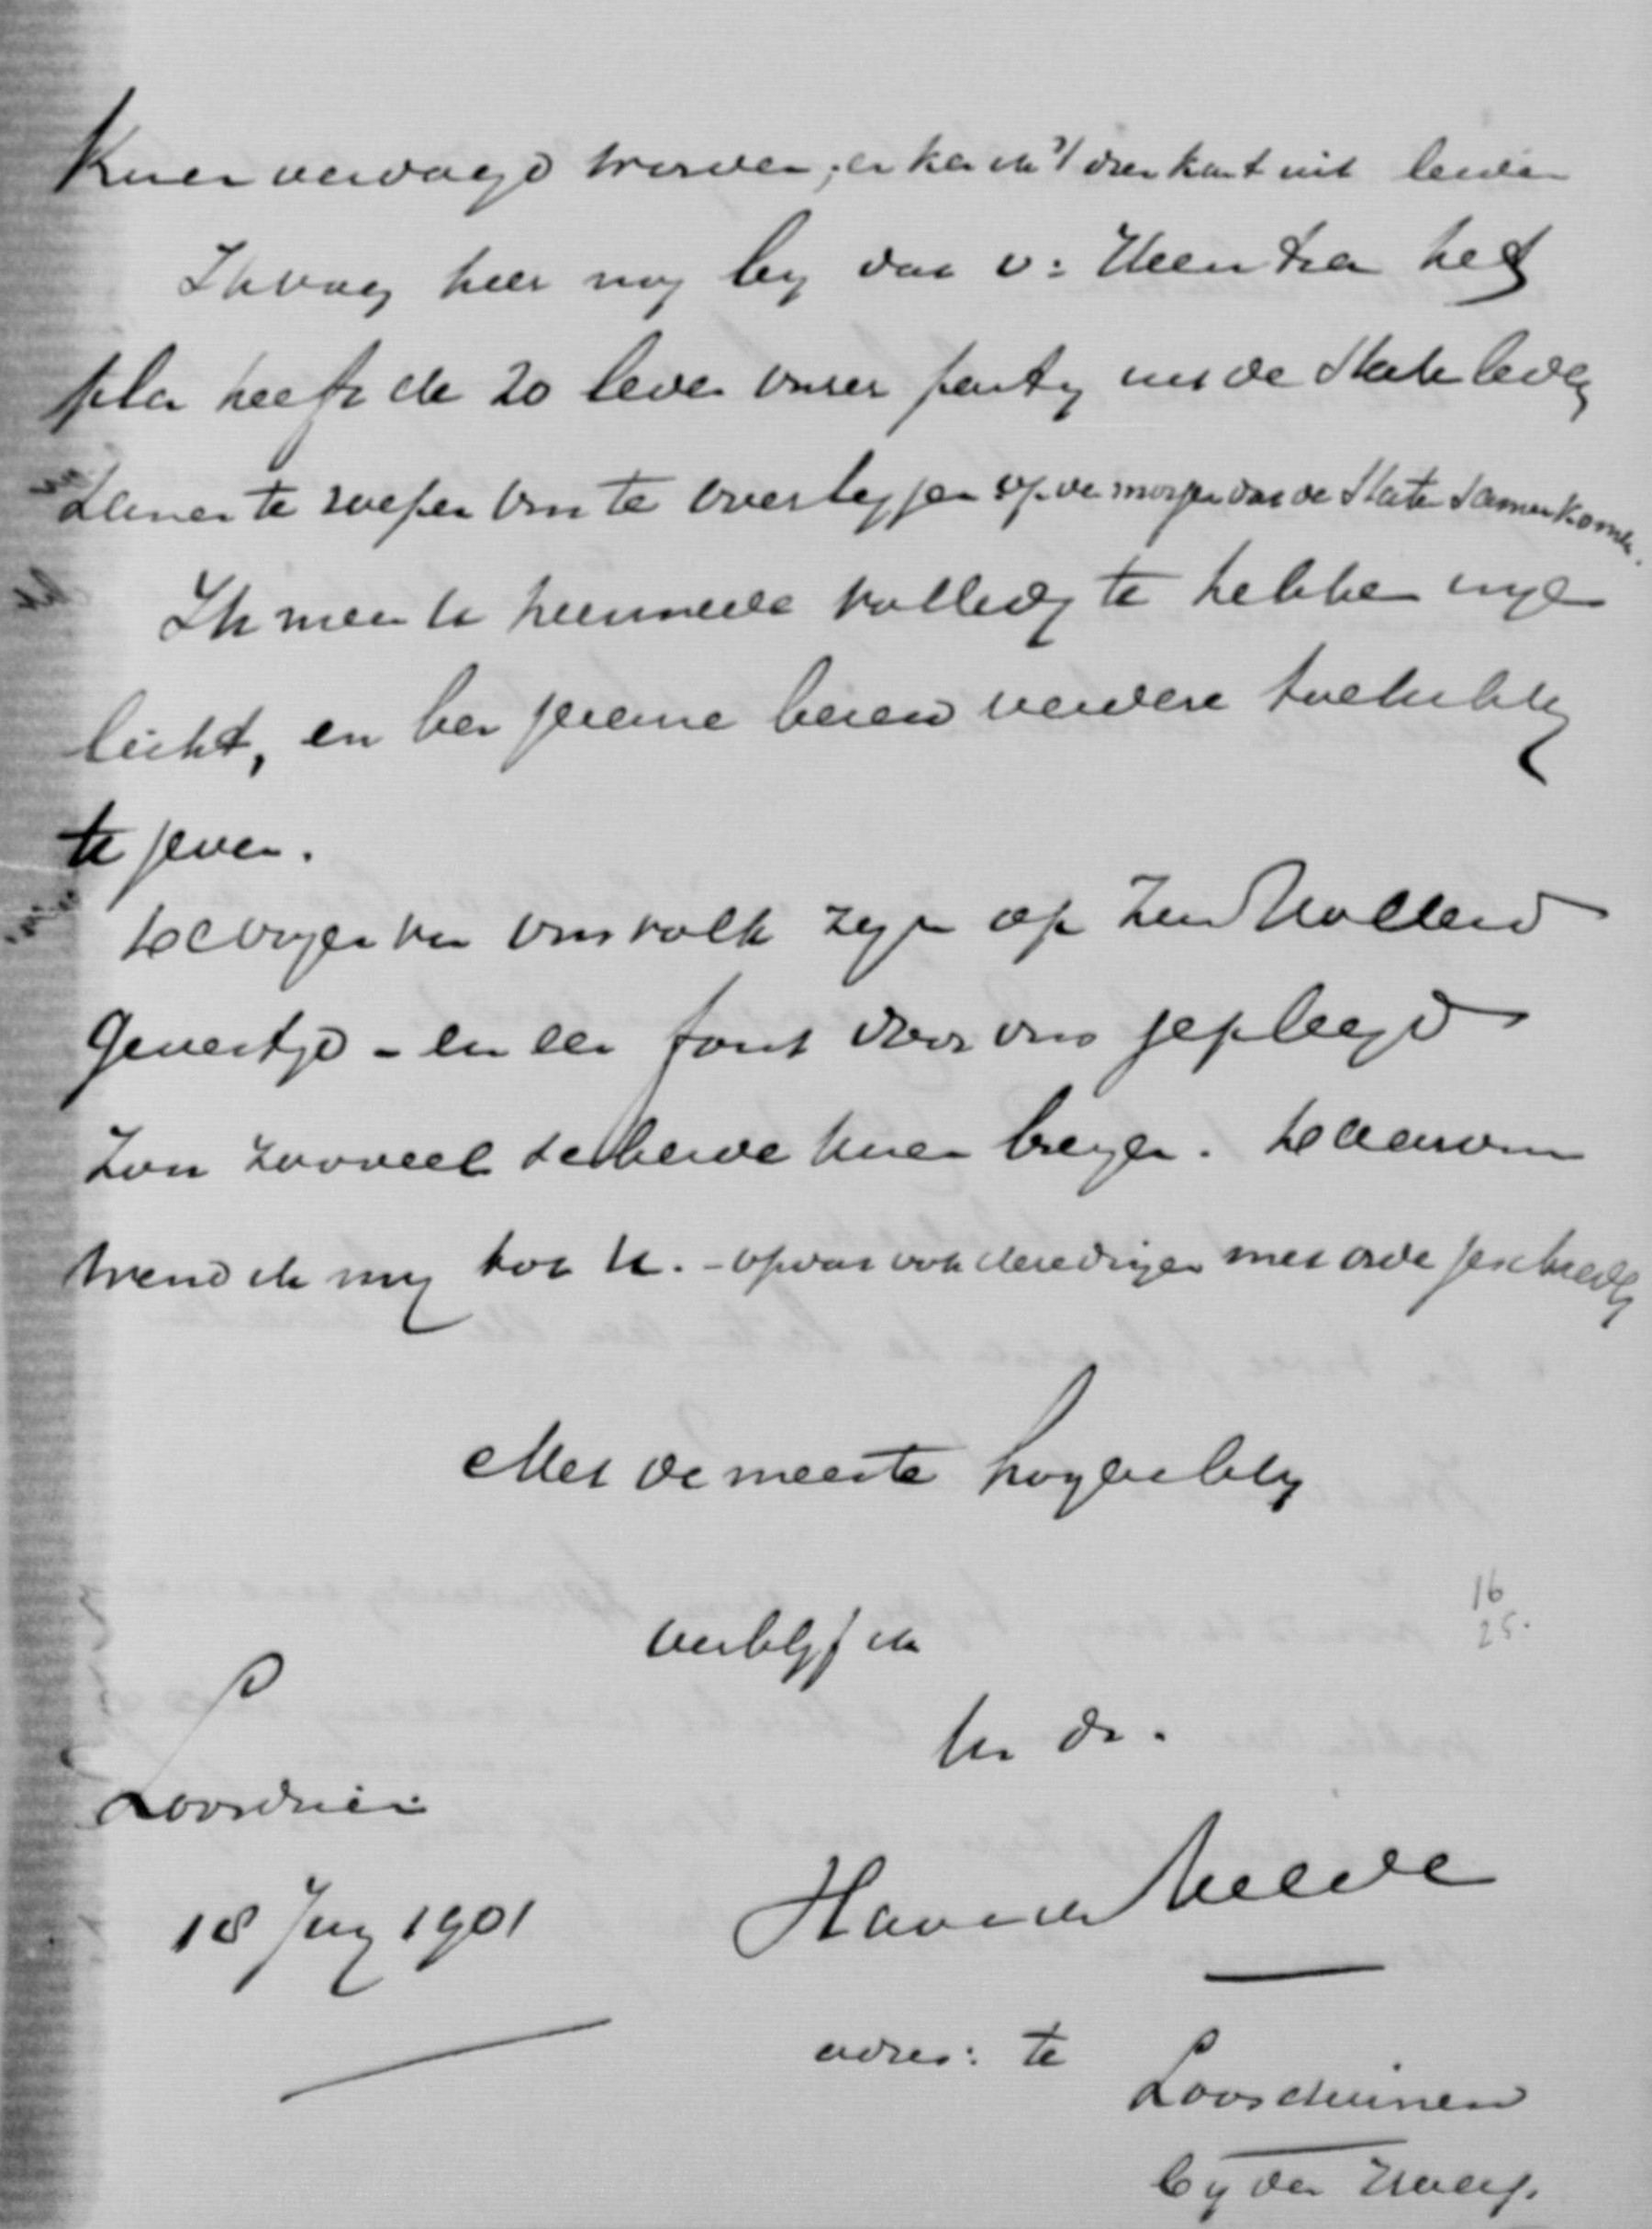 Kunen verdaagd worden; er kan m.i. dien kant uit leiden
Ik voeg hier nog by dat v: Heemstra het
plan heeft de 20 leden onzer party uit de Staten ledig
samen te roepen om te overleggen op de morgen dat de Staten samenkomen.
Ik meen U hiermede volledig te hebben inge
licht, en ben gaarne bereid verdere toelichting
te geven.
De oogen van ons volk zyn op Zuid Holland
Gevestigd - en een fout door ons gepleegd
Zou zooveel schade kunen brengen. Daarom
wend ik my tot U. - opdat ook deze dingen met orde geschieden
Met de meeste hoogachting
verblyf ik
Uw dr.
Loosduinen
18 Juny 1901
H
adres: te
Loosduinen
by den Haag.
16
25.